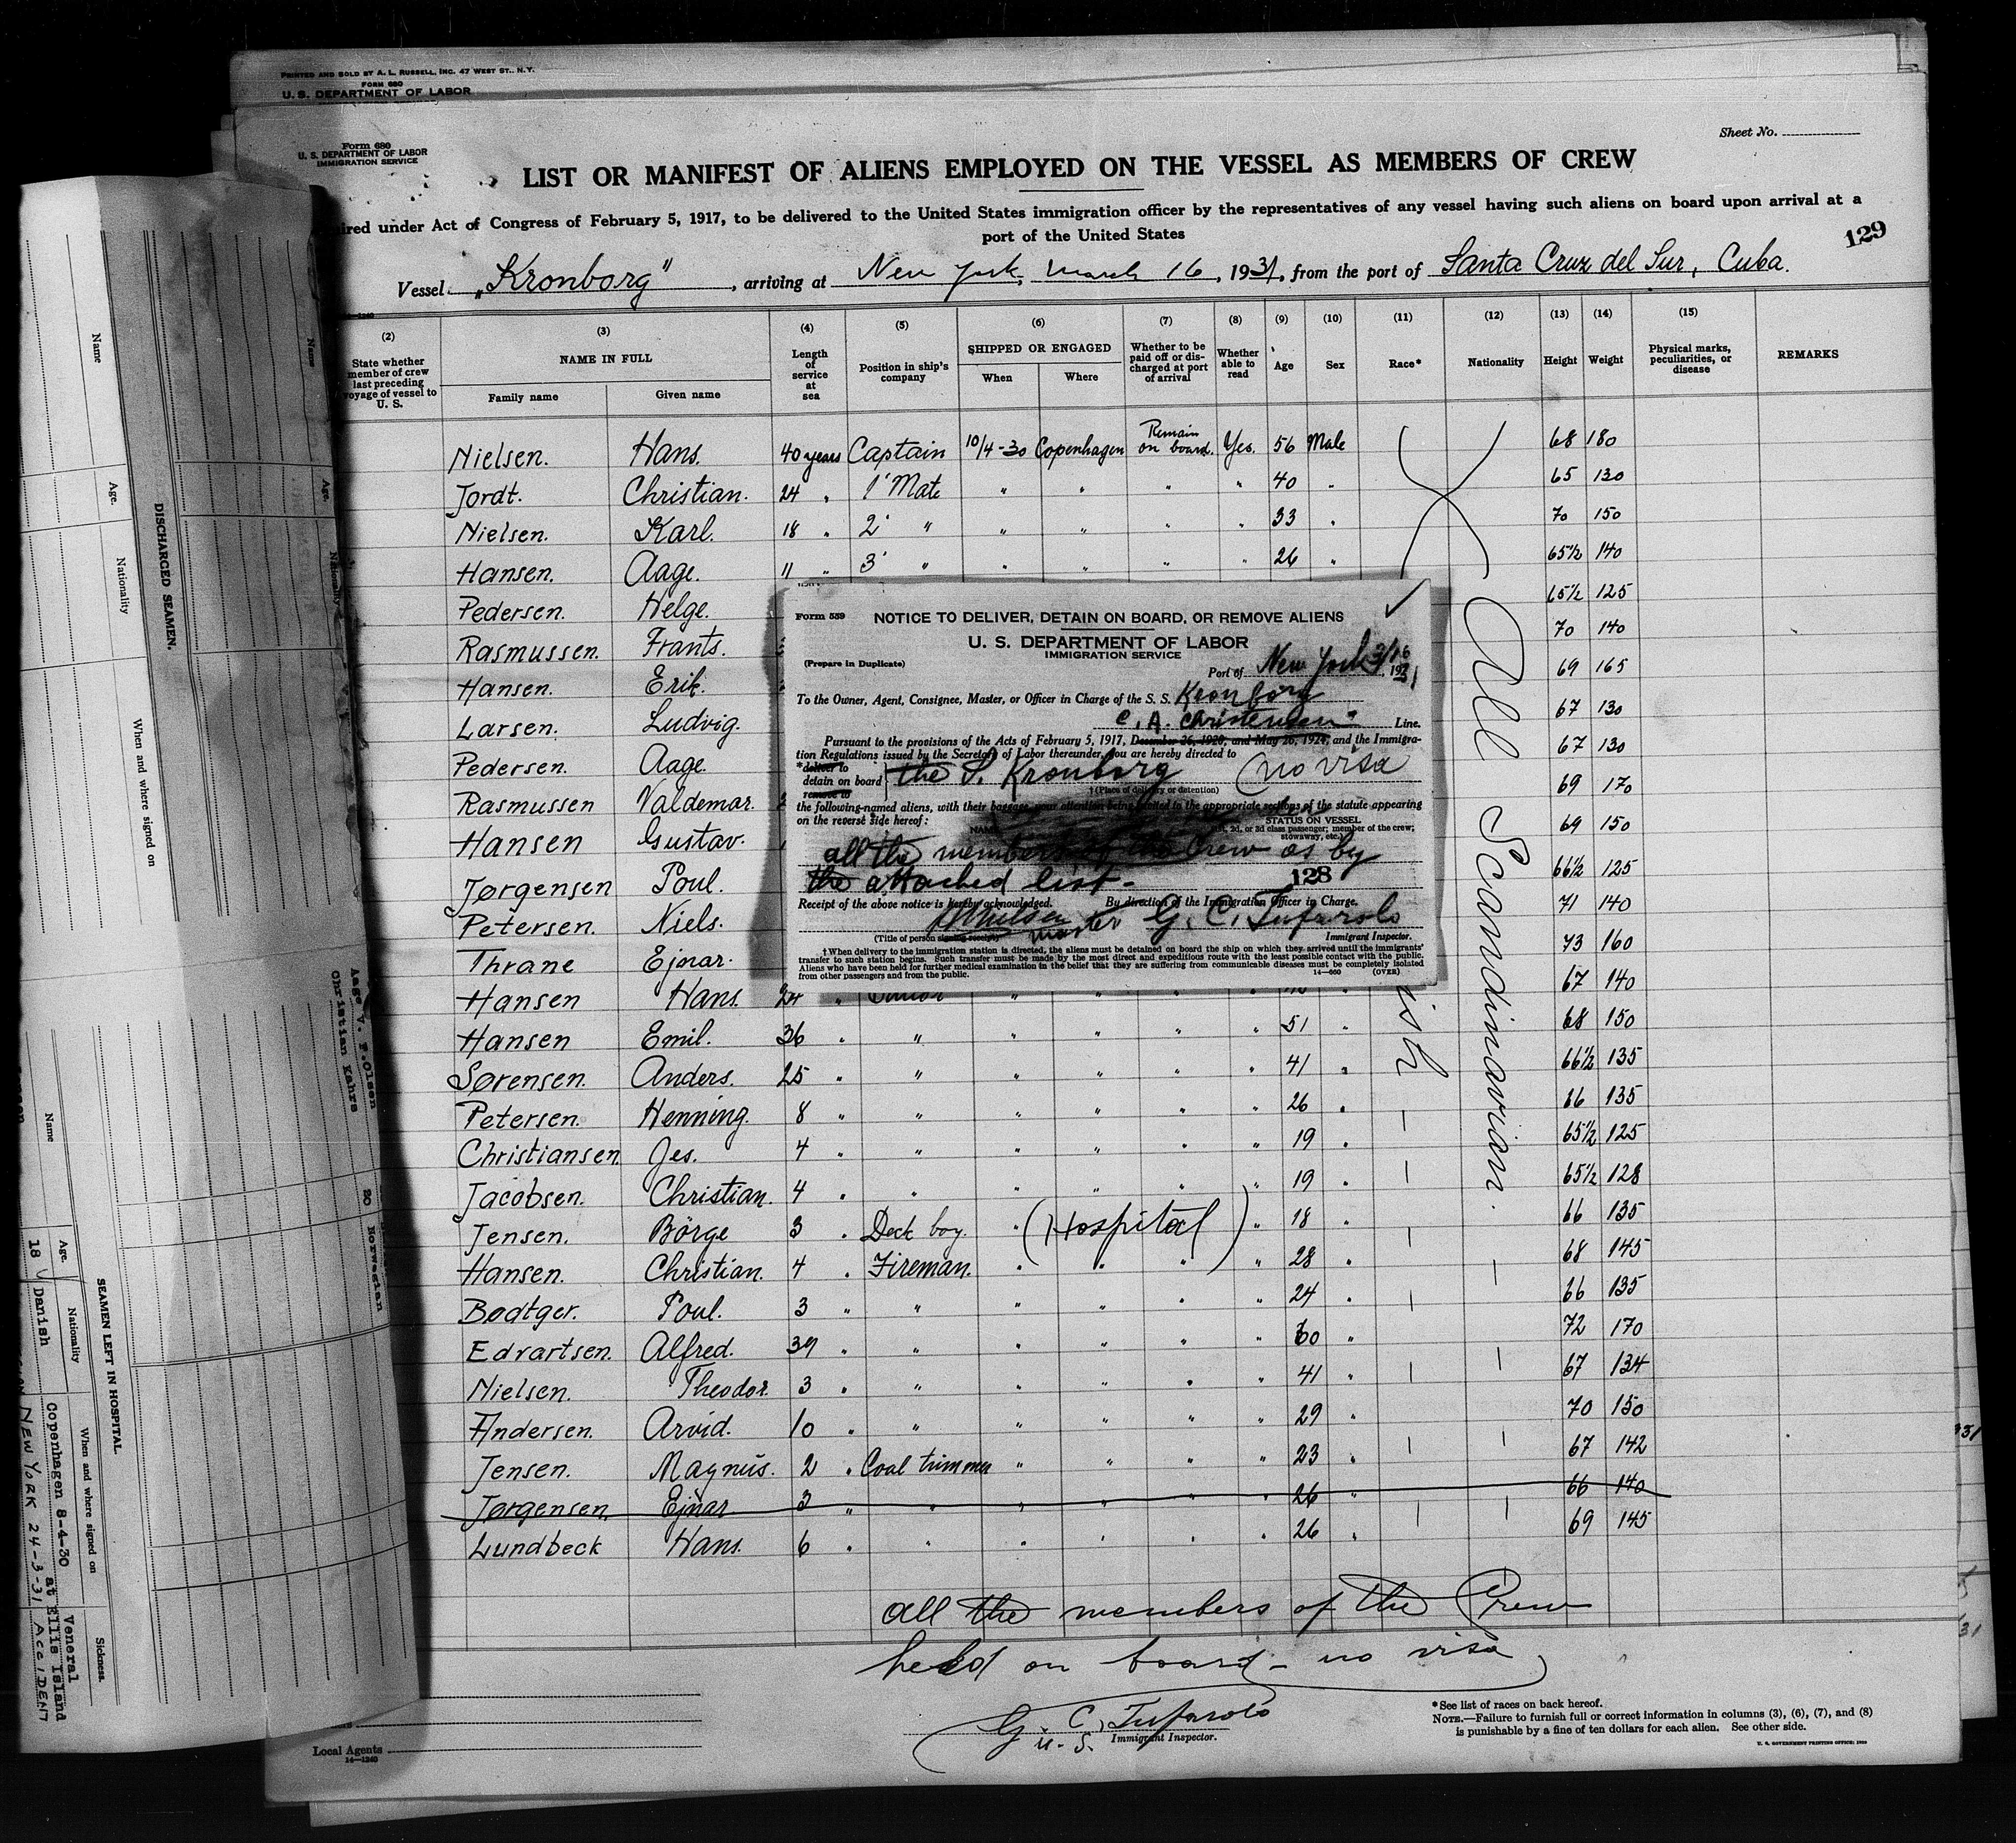 PRINTED AND SOLD BY A. L. RUSSELL, INC. 47 WEST ST., N.Y.
FORM 680
U. S. DEPARTMENT OF LABOR
Form 680
U. S. DEPARTMENT OF LABOR
IMMIGRATION SERVICE
Sheet No.
LIST OR MANIFEST OF ALIENS EMPLOYED ON THE VESSEL AS MEMBERS OF CREW
ired under Act of Congress of February 5, 1917, to be delivered to the United States immigration officer by the representatives of any vessel having such aliens on board upon arrival at a
port of the United States
129
Vessel „Kronborg”, arriving at New York, March 16, 1931, from the port of Santa Cruz del Sur, Cuba.
(2) (3) (4) (5) (6) (7) (8) (9) (10) (11) (12) (13) (14) (15)
State whether member of crew last preceding voyage of vessel to U. S.
NAME IN FULL
Family name Given name
Length of service at sea
Position in ship's company
SHIPPED OR ENGAGED
When Where
Whether to be paid off or discharged at port of arrival
Whether able to read
Age Sex Race* Nationality Height Weight
Physical marks, peculiarities, or disease
REMARKS
Nielsen. Hans. 40 years Captain 10/4-30 Copenhagen Remain on board. Yes. 56 Male 68 180
Jordt. Christian. 24 " 1' Mate " " " " 40 " 65 130
Nielsen. Karl. 18 " 2' " " " " " 33 " 70 150
Hansen. Aage. 11 " 3' " " " " " 26 " 65½ 140
Pedersen. Helge. 65½ 125
Rasmussen. Frants. 70 140
Hansen. Erik. 69 165
Larsen. Ludvig. 67 130
Pedersen. Aage. 67 130
Rasmussen Valdemar. 69 170
Hansen Gustav. 69 150
Jørgensen Poul. 66½ 125
Petersen. Niels. 71 140
Thrane Ejnar. 73 160
Hansen Hans. 24 " " " " " 67 140
Hansen Emil. 36 " " " " " " 51 " 68 150
Sørensen. Anders. 25 " " " " " " 41 " 66½ 135
Petersen. Henning. 8 " " " " " " 26 " 66 135
Christiansen. Jes. 4 " " " " " " 19 " 65½ 125
Jacobsen. Christian. 4 " " " " " " 19 " 65½ 128
Jensen. Börge 3 " Deck boy. " (Hospital) " 18 " 66 135
Hansen. Christian. 4 " Fireman. " " " " 28 " 68 145
Bødtger. Poul. 3 " " " " " " 24 " 66 135
Edvartsen. Alfred. 39 " " " " " " 60 " 72 170
Nielsen. Theodor. 3 " " " " " " 41 " 67 134
Andersen. Arvid. 10 " " " " " " 29 " 70 150
Jensen. Magnus. 2 " Coal trimmer " " " " 23 " 67 142
Jørgensen. Ejnar 3 " " " " " " 26 " 66 140
Lundbeck Hans. 6 " " " " " " 26 " 69 145
ish
All Scandinavian.
all the members of the Crew
held on board - no visa
G. C. Tufarolo
U. S. Immigrant Inspector.
Local Agents
14—1240
*See list of races on back hereof.
NOTE.—Failure to furnish full or correct information in columns (3), (6), (7), and (8)
is punishable by a fine of ten dollars for each alien. See other side.
Form 559
NOTICE TO DELIVER, DETAIN ON BOARD, OR REMOVE ALIENS
U. S. DEPARTMENT OF LABOR
IMMIGRATION SERVICE
(Prepare in Duplicate)
Port of New York 3/16, 1931
To the Owner, Agent, Consignee, Master, or Officer in Charge of the S. S. Kronborg
C. A. Christensen Line.
Pursuant to the provisions of the Acts of February 5, 1917, December 26, 1920, and May 26, 1924, and the Immigra-
tion Regulations issued by the Secretary of Labor thereunder, you are hereby directed to
*deliver to
detain on board the S. Kronborg (no visa
remove to
†(Place of delivery or detention)
the following-named aliens, with their baggage, your attention being invited to the appropriate sections of the statute appearing
on the reverse side hereof:
NAME
STATUS ON VESSEL
(1st, 2d, or 3d class passenger; member of the crew; stowaway, etc.)
all the members of the Crew as by
the attached list -
128
Receipt of the above notice is hereby acknowledged. By direction of the Immigration Officer in Charge.
HNielsen master G. C. Tufarolo
(Title of person signing receipt)
Immigrant Inspector.
†When delivery to the immigration station is directed, the aliens must be detained on board the ship on which they arrived until the immigrants'
transfer to such station begins. Such transfer must be made by the most direct and expeditious route with the least possible contact with the public.
Aliens who have been held for further medical examination in the belief that they are suffering from communicable diseases must be completely isolated
from other passengers and from the public.
14—660 (OVER)
DISCHARGED SEAMEN.
Name Age. Nationality When and where signed on
Aage V. F. Olsen
Christian Kahrs 20 Norwegian
SEAMEN LEFT IN HOSPITAL.
Name Age. Nationality When and where signed on Sickness.
18 Danish Copenhagen 8-4-30 Veneral
at Ellis Island
NEW YORK 24-3-31 ACCIDENT